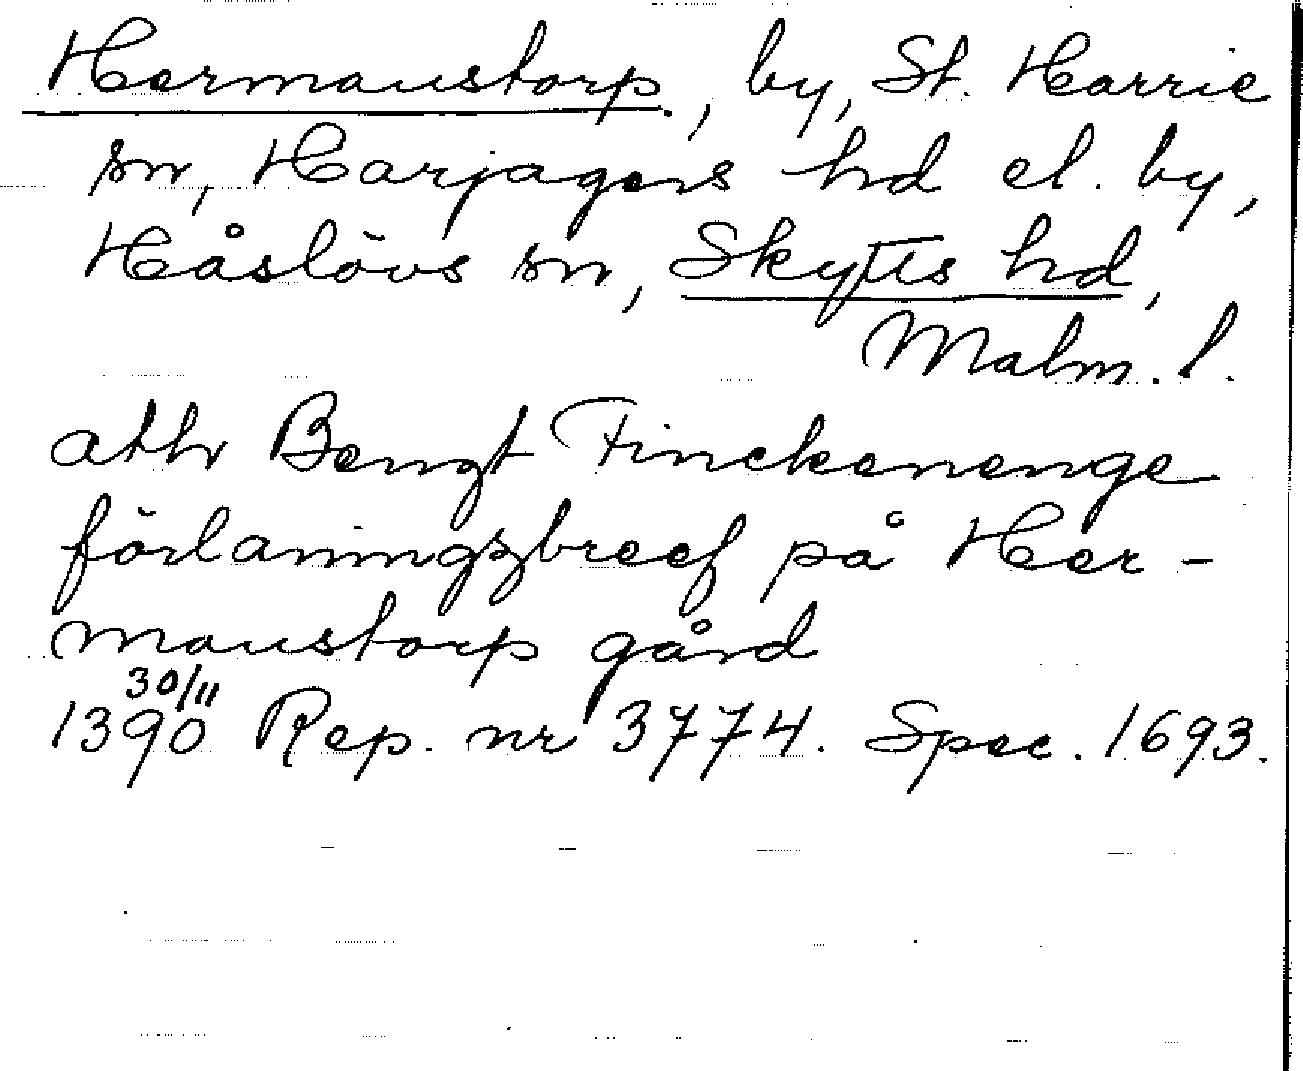 Hermanstorp, by, St. Harrie
sn, Harjagers hd el. by,
Håslövs sn, Skytts hd,
Malm. l.
athr Bengt Finckenenge
förlaningzbreef på Her-
manstorp gård
30/11
1390 Rep. nr 3774. Spec. 1693.